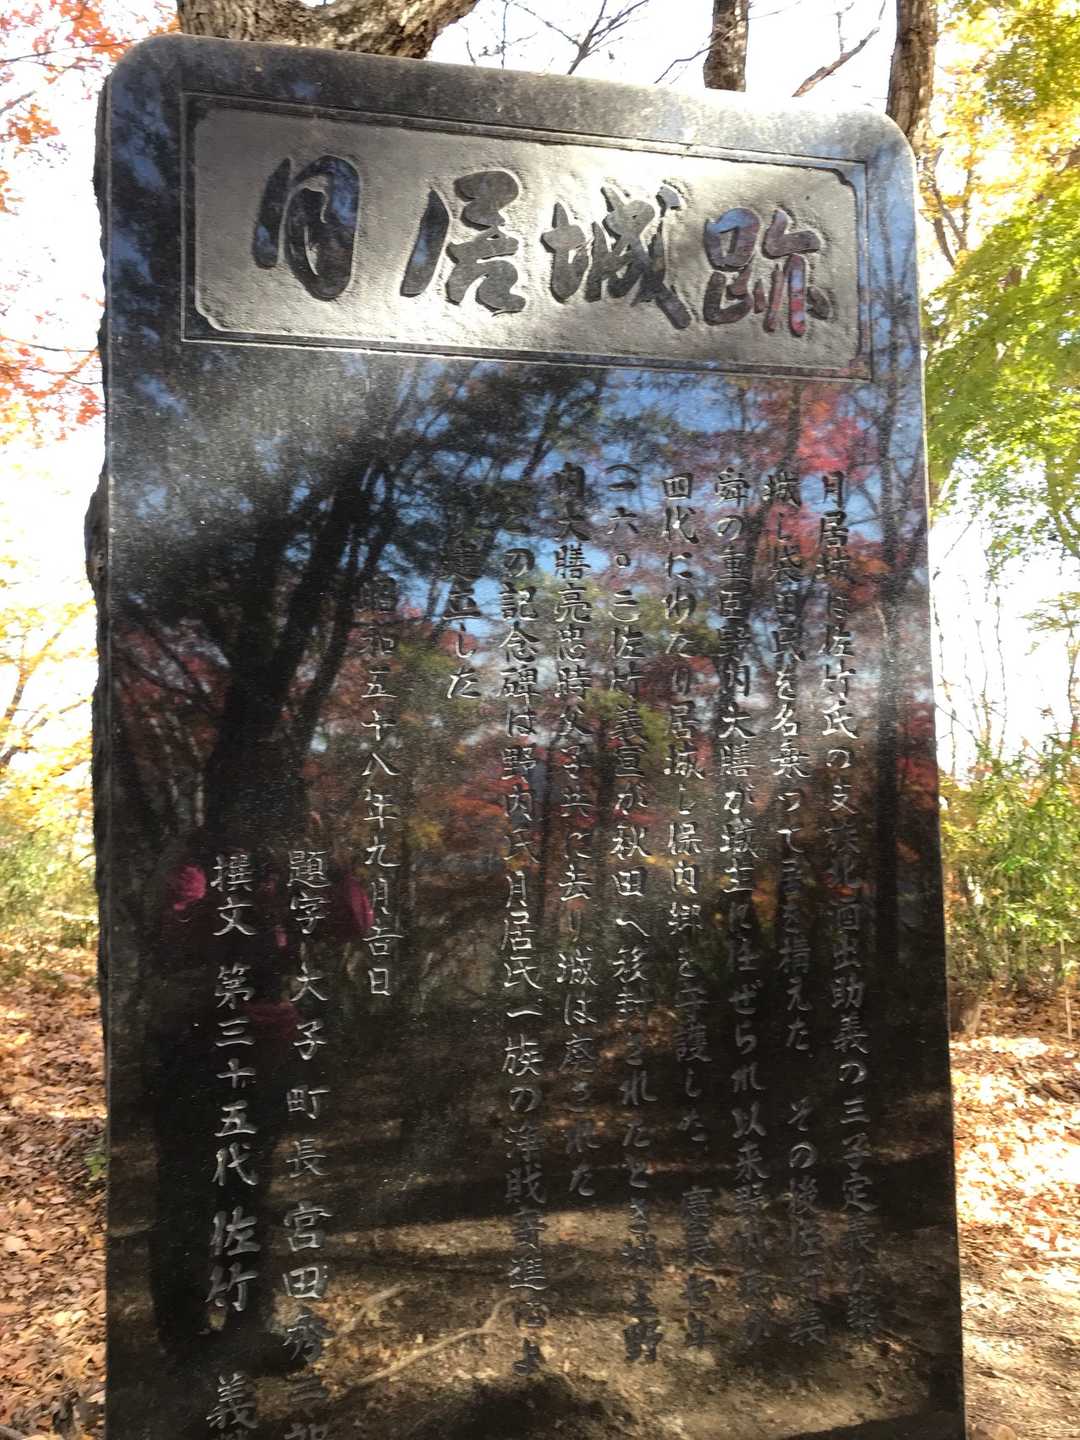 月居城跡
月居城は佐竹氏の支族北酒出助義の三子定義が築
城し袋田氏を名乗って居を構えた その後佐竹義
舜の重臣野内大膳が城主に任ぜられ以来野内氏が
四代にわたり居城し保内郷を守護した 慶長七年
(一六〇二佐竹義宣が秋田へ移封されたとき城主野
内大膳亮忠時父子共に去り城は廃された
この記念碑は野内氏月居氏一族の浄戝寄進により
建立した
昭和五十八年九月吉日
題字 大子町長宮田秀三郎
撰文 第三十五代 佐竹 義